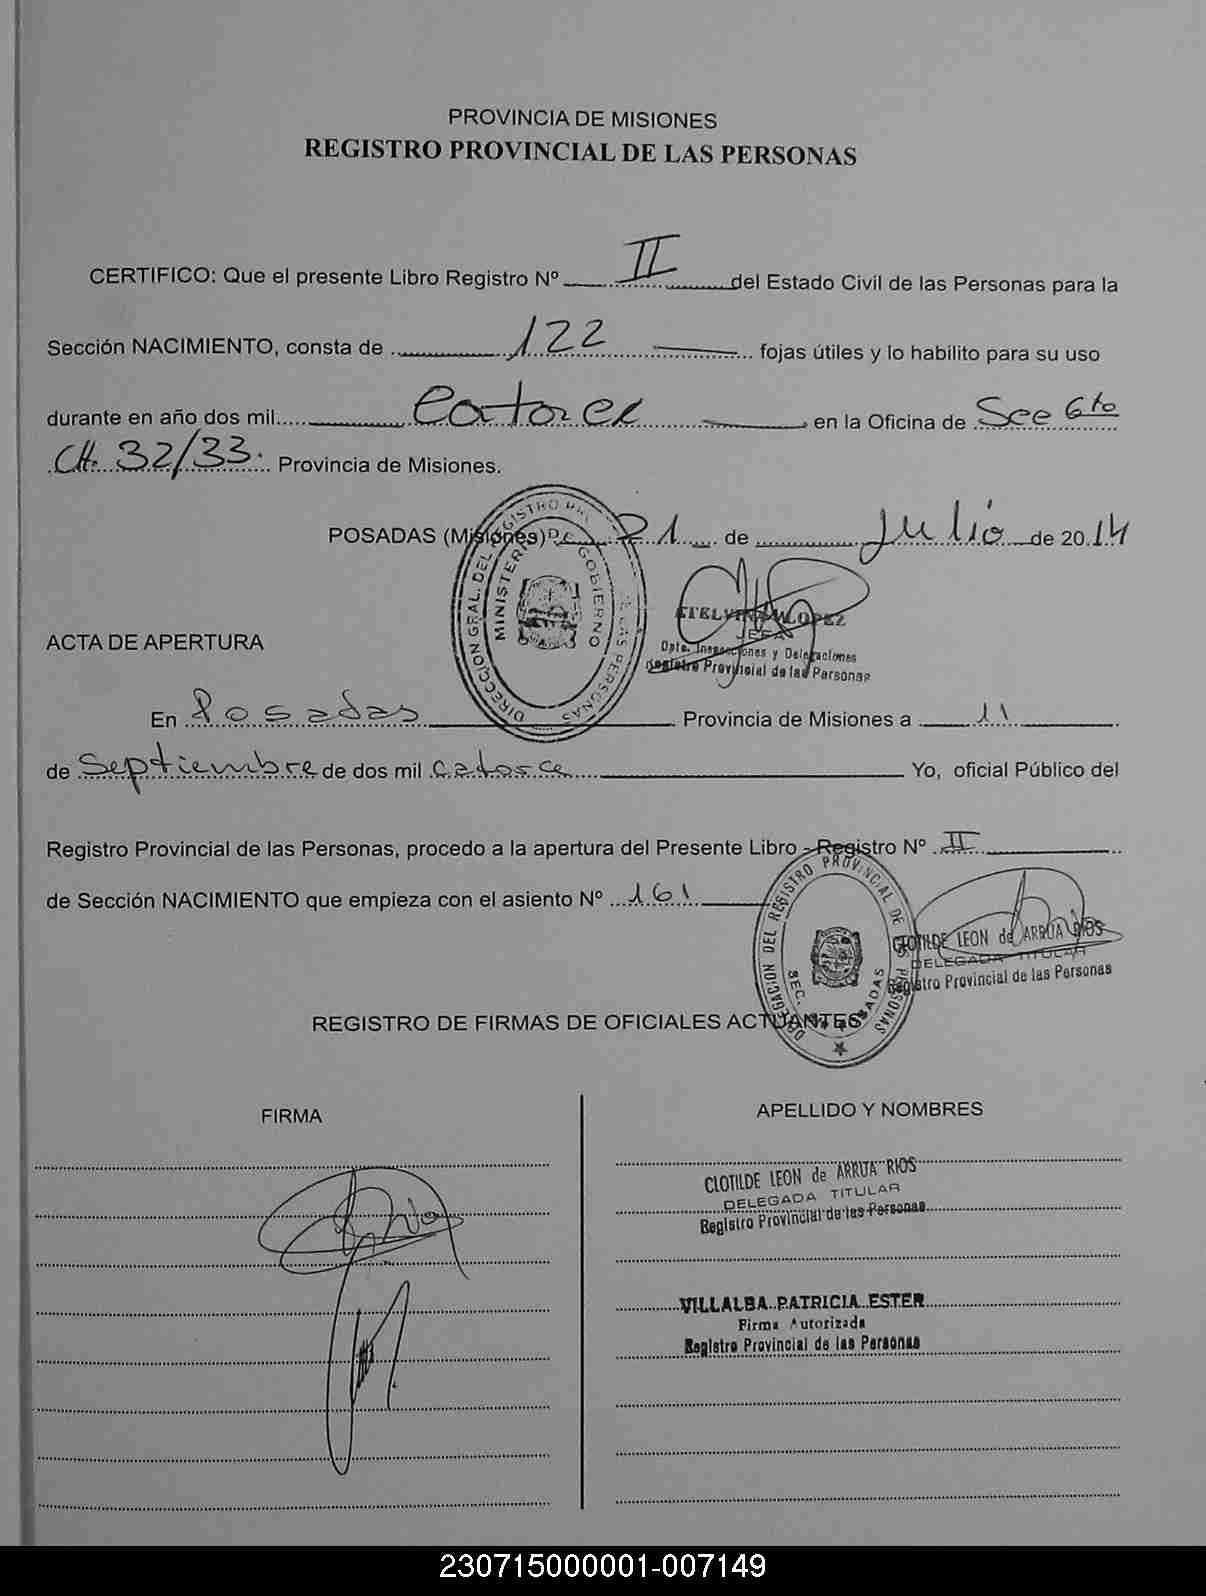 PROVINCIA DE MISIONES
REGISTRO PROVINCIAL DE LAS PERSONAS
CERTIFICO: Que el presente Libro Registro Nº II del Estado Civil de las Personas para la
Sección NACIMIENTO, consta de 122 fojas útiles y lo habilito para su uso
durante en año dos mil catorce en la Oficina de Sec 6to
CH. 32/33. Provincia de Misiones.
POSADAS (Misiones) 21 de Julio de 2014
DIRECCION GRAL. DEL REGISTRO DE LAS PERSONAS
MINISTERIO DE GOBIERNO
ETELVINA LOPEZ
JEFA
Dpto. Inspecciones y Delegaciones
Registro Provincial de las Personas
ACTA DE APERTURA
En Posadas Provincia de Misiones a 11
de Septiembre de dos mil catorce Yo, oficial Público del
Registro Provincial de las Personas, procedo a la apertura del Presente Libro - Registro Nº II
de Sección NACIMIENTO que empieza con el asiento Nº 161
DELEGACION DEL REGISTRO PROVINCIAL DE LAS PERSONAS
SEC. POSADAS
CLOTILDE LEON de ARRUA RIOS
DELEGADA TITULAR
Registro Provincial de las Personas
REGISTRO DE FIRMAS DE OFICIALES ACTUANTES
FIRMA
APELLIDO Y NOMBRES
CLOTILDE LEON de ARRUA RIOS
DELEGADA TITULAR
Registro Provincial de las Personas
VILLALBA PATRICIA ESTER
Firma Autorizada
Registro Provincial de las Personas
230715000001-007149